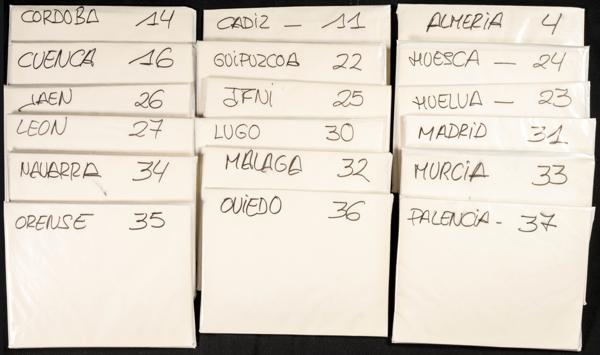 CORDOBA 14
CUENCA 16
JAEN 26
LEON 27
NAVARRA 34
ORENSE 35
CADIZ - 11
GUIPUZCOA 22
IFNI 25
LUGO 30
MALAGA 32
OVIEDO 36
ALMERIA 4
HUESCA - 24
HUELVA - 23
MADRID 31
MURCIA 33
PALENCIA - 37